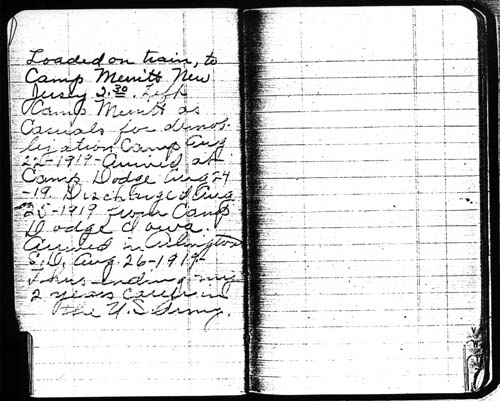 Loaded on train, to
Camp Merritt New
Jersey 3.30. Left
Camp Merritt as
Casuals for demob-
lization Camp Aug
22-1919- Arrived at
Camp Dodge Aug 24
-19. Discharged Aug
25-1919 from Camp
Dodge Iowa.
Arrived in Arlington
S.D. Aug. 26-1919-
Thus ending my
2 years career in
the U.S. Army.